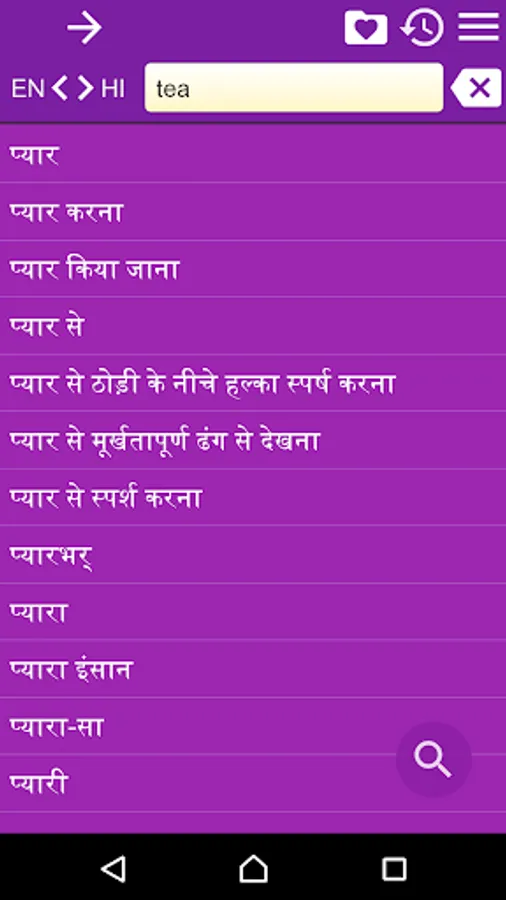 EN <> HI tea
प्यार
प्यार करना
प्यार किया जाना
प्यार से
प्यार से ठोड़ी के नीचे हल्का स्पर्ष करना
प्यार से मूर्खतापूर्ण ढंग से देखना
प्यार से स्पर्श करना
प्यारभर्
प्यारा
प्यारा इंसान
प्यारा-सा
प्यारी